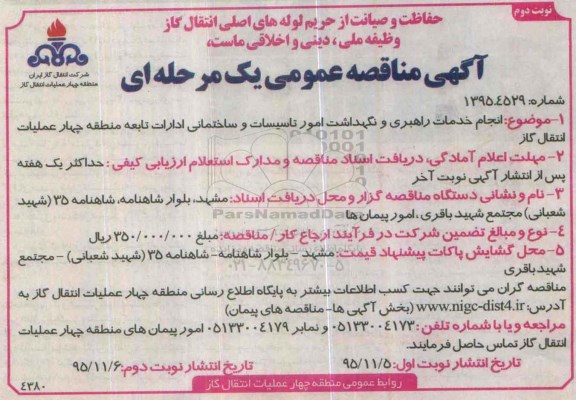 نوبت دوم
حفاظت و صیانت از حریم لوله های اصلی انتقال گاز
وظیفه ملی، دینی و اخلاقی ماست،
شرکت انتقال گاز ایران
منطقه چهار عملیات انتقال گاز
آگهی مناقصه عمومی یک مرحله ای
شماره: ۱۳۹۵.۴۵۲۹
۱-موضوع: انجام خدمات راهبری و نگهداشت امور تاسیسات و ساختمانی ادارات تابعه منطقه چهار عملیات
انتقال گاز
۲- مهلت اعلام آمادگی، دریافت اسناد مناقصه و مدارک استعلام ارزیابی کیفی: حداکثر یک هفته
پس از انتشار آگهی نوبت آخر
۳- نام و نشانی دستگاه مناقصه گزار و محل دریافت اسناد: مشهد، بلوار شاهنامه، شاهنامه ۳۵ (شهید
شعبانی) مجتمع شهید باقری، امور پیمان ها
ParsNamadData
۴- نوع و مبالغ تضمین شرکت در فرآیند ارجاع کار / مناقصه: مبلغ ۳۵۰/۰۰۰/۰۰۰ ریال
۵- محل گشایش پاکات پیشنهاد قیمت: مشهد - بلوار شاهنامه- شاهنامه ۳۵ (شهید شعبانی) - مجتمع
شهید باقری
۰۲۱-۸۸۳۴۹۶۷۰-۵
مناقصه گران می توانند جهت کسب اطلاعات بیشتر به پایگاه اطلاع رسانی منطقه چهار عملیات انتقال گاز به
آدرس: www.nigc-dist4.ir (بخش آگهی ها-مناقصه های پیمان)
مراجعه و یا با شماره تلفن: ۰۵۱۳۳۰۰۴۱۷۳ و نمابر ۰۵۱۳۳۰۰۴۱۷۹ امور پیمان های منطقه چهار عملیات
انتقال گاز تماس حاصل فرمایند.
تاریخ انتشار نوبت اول: ۹۵/۱۱/۵ تاریخ انتشار نوبت دوم: ۹۵/۱۱/۶
روابط عمومی منطقه چهار عملیات انتقال گاز
۴۳۸۰